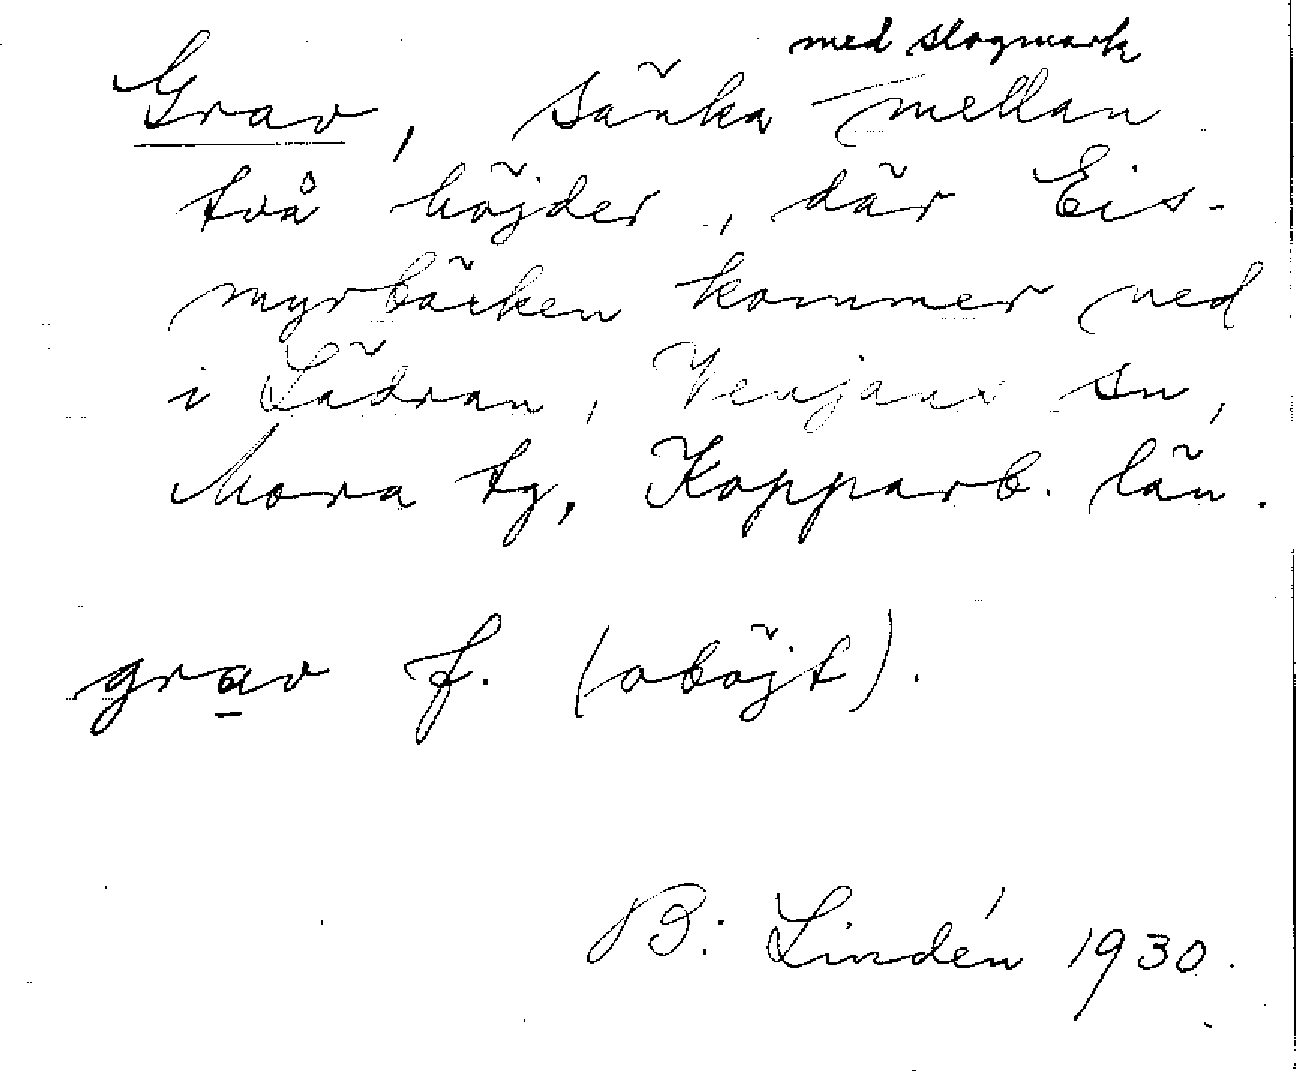 med slogmark
Grav, sänka mellan
två höjder, där Eis-
myrbäcken kommer ned
i Lädran, Venjans sn,
Mora tg, Kopparb. län.
grav f. (oböjt).
B. Lindén 1930.